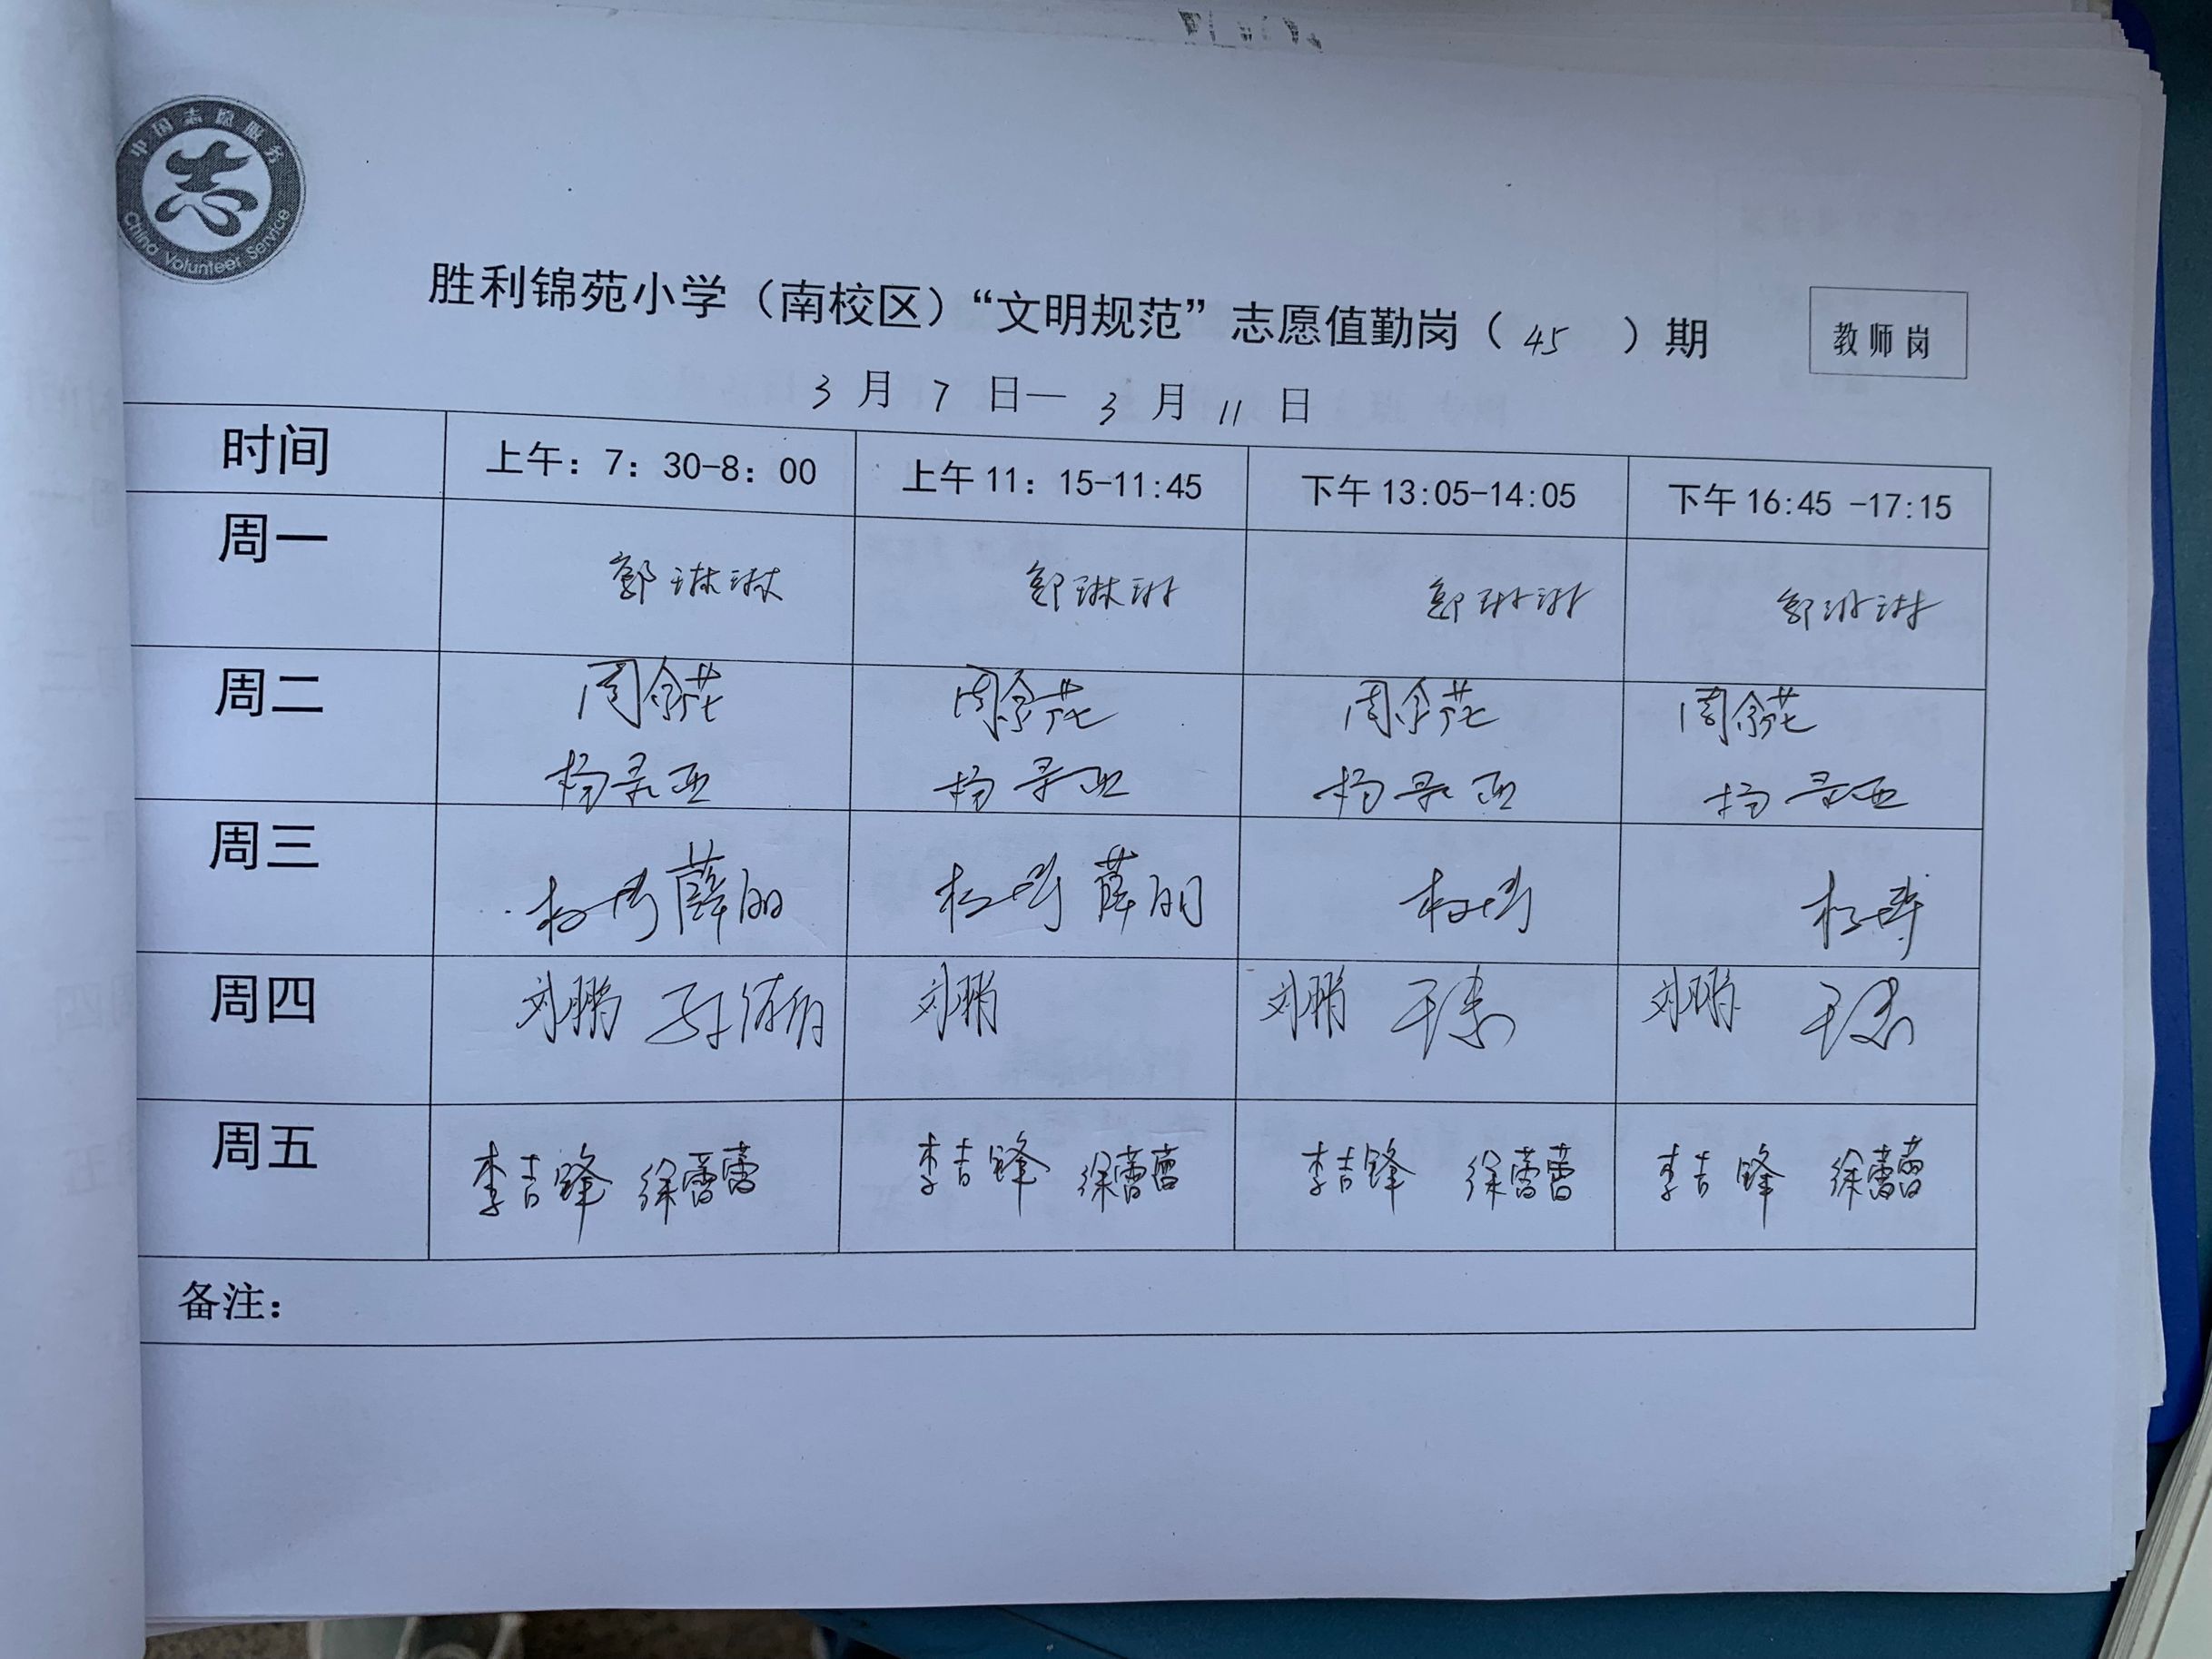 中国志愿服务
志
China Volunteer Service
胜利锦苑小学（南校区）“文明规范”志愿值勤岗（ 45 ）期
教师岗
3 月 7 日— 3 月 11 日
时间 上午：7：30-8：00 上午 11：15-11:45 下午 13:05-14:05 下午 16:45 -17:15
周一 郭琳琳 郭琳琳 郭琳琳 郭琳琳
周二 周 周 周 周
杨 杨 杨 杨
周三 薛明 薛明
周四 刘鹏 刘鹏 刘鹏 刘鹏
周五 李吉锋 徐蕾蕾 李吉锋 徐蕾蕾 李吉锋 徐蕾蕾 李吉锋 徐蕾蕾
备注：